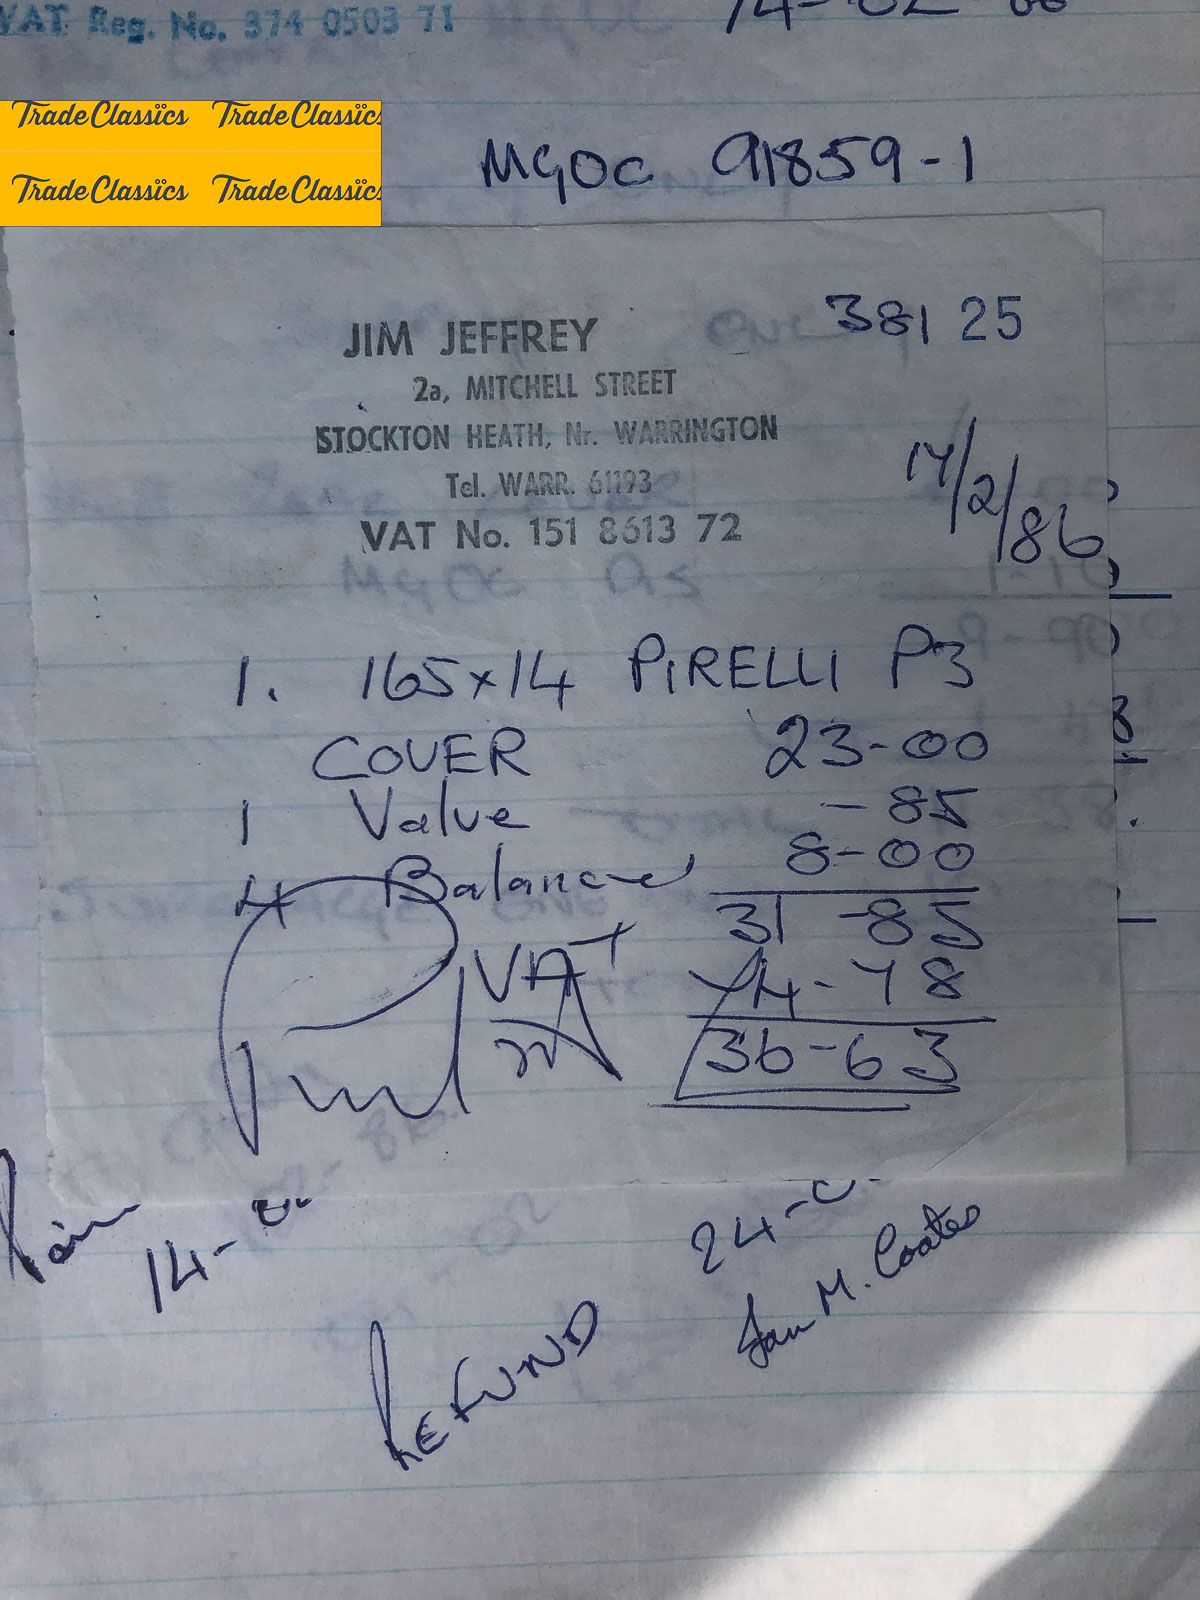 VAT Reg. No. 374 0503 71
TradeClassics TradeClassics
TradeClassics TradeClassics
MGOC 91859-1
38125
JIM JEFFREY
2a, MITCHELL STREET
STOCKTON HEATH, Nr. WARRINGTON
Tel. WARR. 61193
VAT No. 151 8613 72
17/2/86
1. 165x14 PIRELLI P3
COVER 23-00
1 Valve -85
4 Balance 8-00
31-85
VAT 4-78
36-63
14-
24-
Ian M. Coates
REFUND